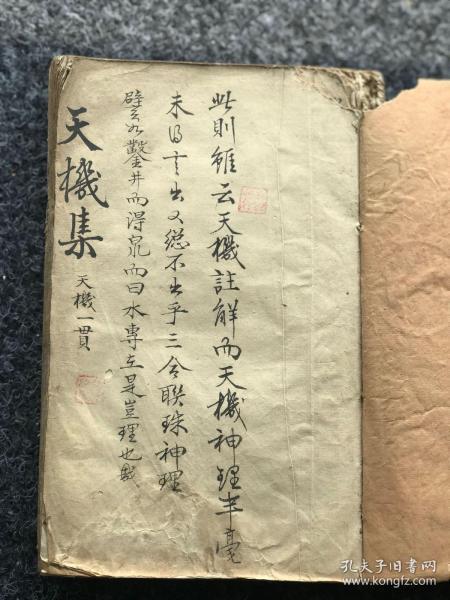 此則雖云天機註解而天機神理半毫
未曾言出又總不出乎三合聯珠神理
譬如鑿井而得泉而曰水專在是豈理也哉
天機集
天機一貫
孔夫子旧书网
www.kongfz.com